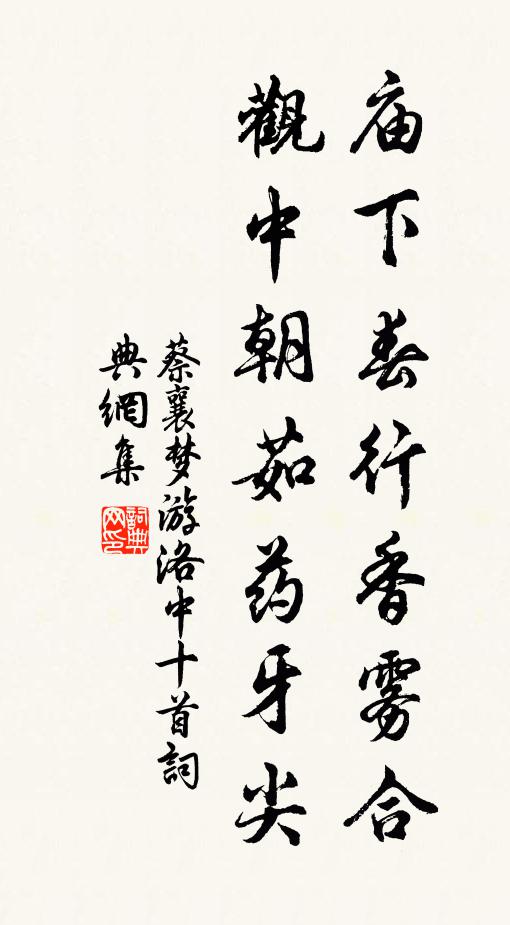 庙下春行香雾合
觀中朝茹药牙尖
蔡襄梦游洛中十首詞
典網集
詞典網印